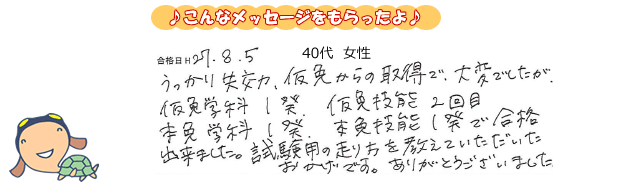 ♪こんなメッセージをもらったよ♪
合格日H27.8.5 40代 女性
うっかり失効、仮免からの取得で、大変でしたが、
仮免学科 1発、仮免技能 2回目
本免学科 1発、本免技能 1発で合格
出来ました。試験用の走り方を教えていただいた
おかげです。ありがとうございました